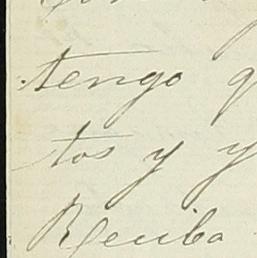 tengo q
tos y y
Reciba